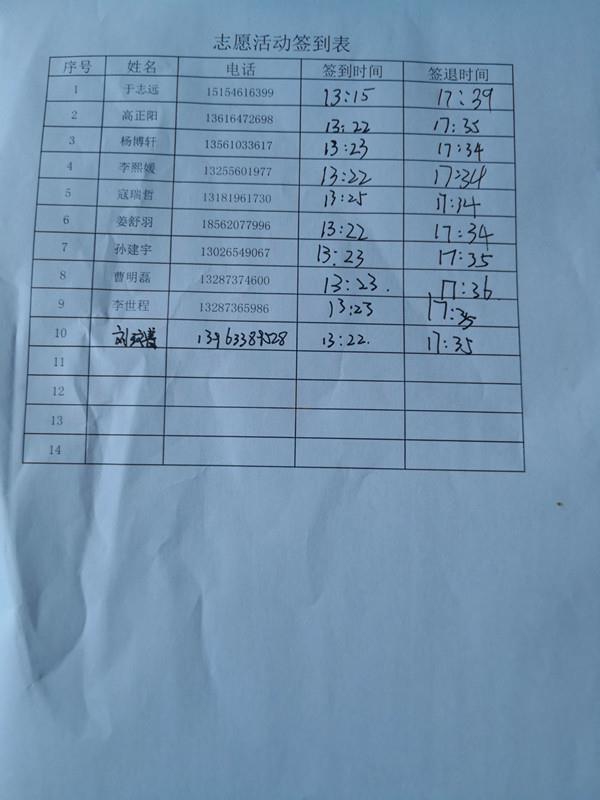 志愿活动签到表
序号 姓名 电话 签到时间 签退时间
1 于志远 15154616399 13:15 17:39
2 高正阳 13616472698 13:22 17:35
3 杨博轩 13561033617 13:23 17:34
4 李熙媛 13255601977 13:22 17:34
5 寇瑞哲 13181961730 13:25 17:34
6 姜舒羽 18562077996 13:22 17:34
7 孙建宇 13026549067 13:23 17:35
8 曹明磊 13287374600 13:23. 17:36.
9 李世程 13287365986 13:23 17:35
10 刘 13963389528 13:22. 17:35
11
12
13
14